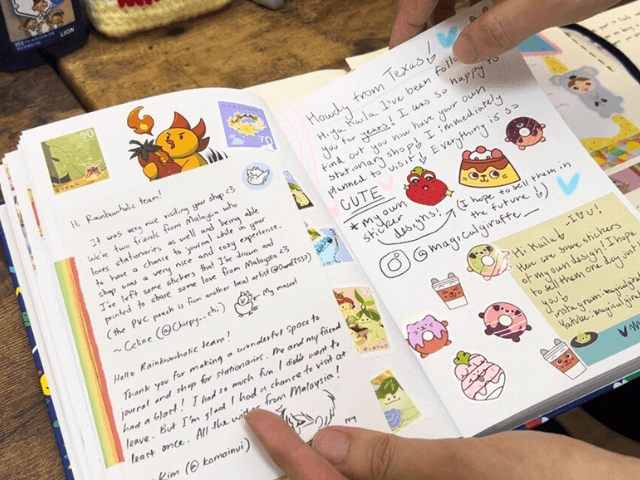 LION
90
70
Hi Rainbowholic team!
It was very nice visiting your shop <3
We're two friends from Malaysia who
loves stationaries as well and being able
to have a chance to journal while in your
shop was a very nice and cozy experience.
I've left some stickers that I've drawn and
printed to share some love from Malaysia <3
(the PVC pouch is from another local artist
My mascot
~ Celine (@Chirpy__chi)
Hello Rainbowholic team!
Thank you for making a wonderful space to
journal and shop for stationaries. Me and my friend
had a blast! I had so much fun I didn't want to
leave. But I'm glad I had a chance to visit at
least once. All the from Malaysia!
Kim (@komainui)
Howdy from Texas!
Hi ya Kaila I've been
you for years! I was so happy to
find out you now have your own
stationary shop! I immediately
planned to visit! Everything is so
CUTE
* my own
sticker
designs!
(I hope to sell them in
the future!)
@magicalygiraffe
Hi Kaila I ♥ U!
Here are some stickers
of my own design! I hope
to sell them one day
you
Instagram: